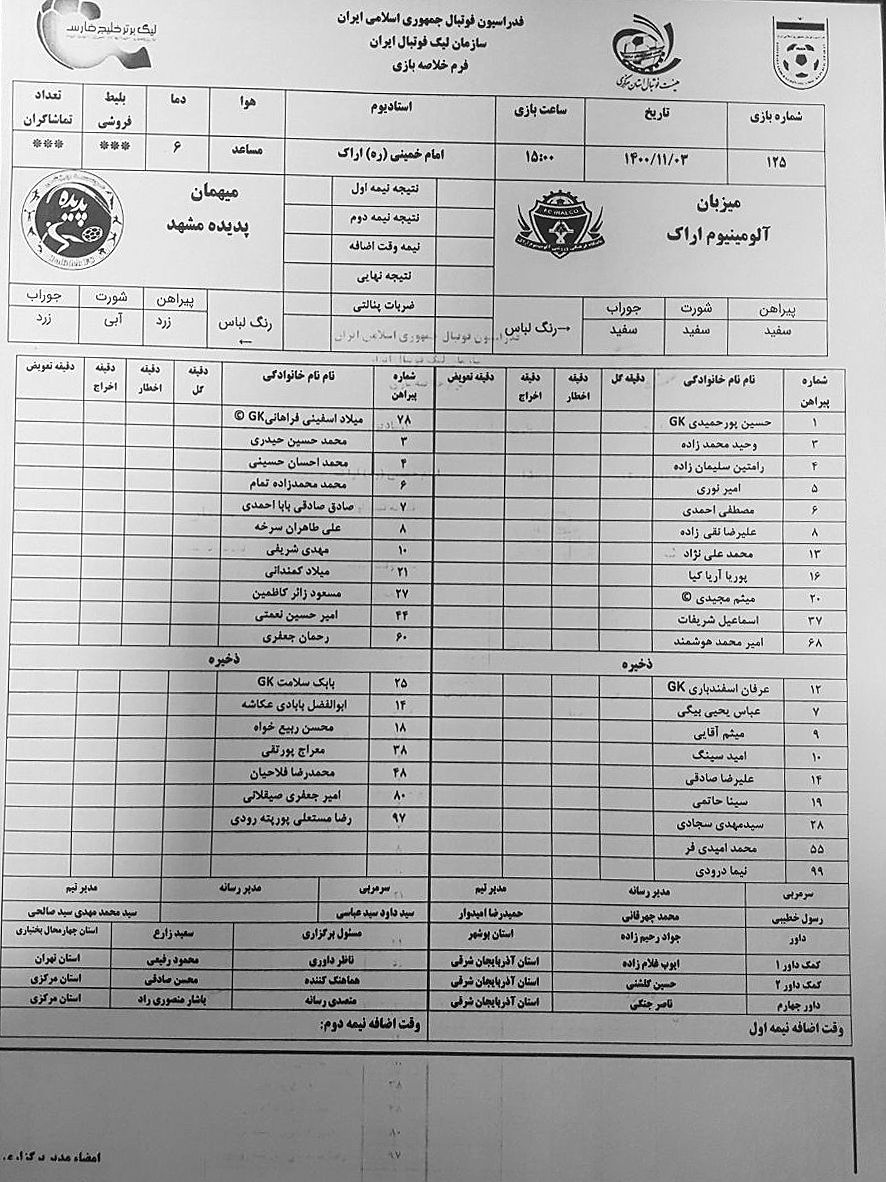 فدراسیون فوتبال جمهوری اسلامی ایران
سازمان لیگ فوتبال ایران
فرم خلاصه بازی
لیگ برتر خلیج فارس
هیئت فوتبال استان مرکزی
شماره بازی تاریخ ساعت بازی استادیوم هوا دما بلیط فروشی تعداد تماشاگران
۱۲۵ ۱۴۰۰/۱۱/۰۳ ۱۵:۰۰ امام خمینی (ره) اراک مساعد ۶ *** ***
میزبان
آلومینیوم اراک
FC IRALCO
نتیجه نیمه اول
نتیجه نیمه دوم
نیمه وقت اضافه
نتیجه نهایی
ضربات پنالتی
میهمان
پدیده مشهد
پدیده
پیراهن شورت جوراب رنگ لباس→
سفید سفید سفید
رنگ لباس ← پیراهن شورت جوراب
زرد آبی زرد
شماره پیراهن نام نام خانوادگی دقیقه گل دقیقه اخطار دقیقه اخراج دقیقه تعویض شماره پیراهن نام نام خانوادگی دقیقه گل دقیقه اخطار دقیقه اخراج دقیقه تعویض
۱ حسین پورحمیدی GK ۷۸ میلاد اسفینی فراهانی GK ©
۳ وحید محمد زاده ۳ محمد حسین حیدری
۴ رامتین سلیمان زاده ۴ محمد احسان حسینی
۵ امیر نوری ۶ محمد محمدزاده تمام
۶ مصطفی احمدی ۷ صادق صادقی بابا احمدی
۸ علیرضا نقی زاده ۸ علی طاهران سرخه
۱۳ محمد علی نژاد ۱۰ مهدی شریفی
۱۶ پوریا آریا کیا ۲۱ میلاد کمندانی
۲۰ میثم مجیدی © ۲۷ مسعود زائر کاظمین
۳۷ اسماعیل شریفات ۴۴ امیر حسین نعمتی
۶۸ امیر محمد هوشمند ۶۰ رحمان جعفری
ذخیره ذخیره
۱۲ عرفان اسفندیاری GK ۲۵ بابک سلامت GK
۷ عباس یحیی بیگی ۱۴ ابوالفضل بابادی عکاشه
۹ میثم آقایی ۱۸ محسن ربیع خواه
۱۰ امید سینگ ۳۸ معراج پورتقی
۱۴ علیرضا صادقی ۴۸ محمدرضا فلاحیان
۱۹ سینا حاتمی ۸۰ امیر جعفری صیقلانی
۲۸ سیدمهدی سجادی ۹۷ رضا مستعلی پورپته رودی
۵۵ محمد امیدی فر
۹۹ نیما درودی
سرمربی مدیر رسانه مدیر تیم سرمربی مدیر رسانه مدیر تیم
رسول خطیبی محمد چهرقانی حمیدرضا امیدوار سید داود سید عباسی سید محمد مهدی سید صالحی
داور جواد رحیم زاده استان بوشهر مسئول برگزاری سعید زارع استان چهارمحال بختیاری
کمک داور ۱ ایوب غلام زاده استان آذربایجان شرقی ناظر داوری محمود رفیعی استان تهران
کمک داور ۲ حسین گلشنی استان آذربایجان شرقی هماهنگ کننده محسن صادقی استان مرکزی
داور چهارم ناصر جنگی استان آذربایجان شرقی متصدی رسانه یاشار منصوری راد استان مرکزی
وقت اضافه نیمه اول وقت اضافه نیمه دوم: